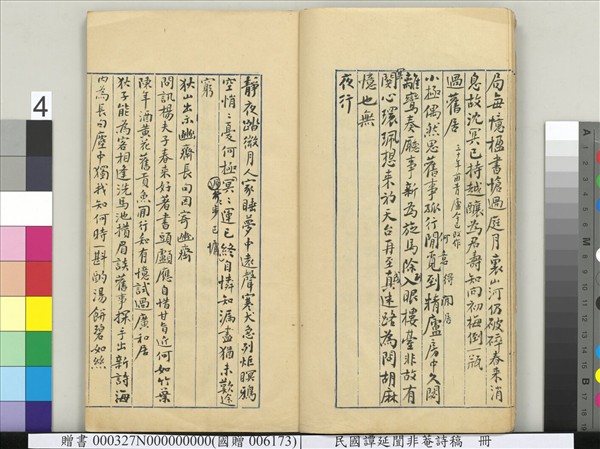 局每憶楹書墖過庭月裏山河仍破碎春來消
息故沈冥已持越釀為君壽知向初梅倒一瓶
過舊居
小極偶然思舊事孤行閒覓到精廬房中久閟
離鸞奏廳事新為旋馬除入眼樓臺非故有
關心環珮想來初天台再至真迷路為問胡麻
憶也無
夜行
靜夜踏微月人家睡夢中遠聲寒犬急列炬暝鴉
空悄悄憂何極冥冥運已終自憐知漏盡猶未歎途
窮
狄山出示幽齋長句因寄幽齋
問訊楊夫子春來好著書頭顱應自惜甘旨近何如竹葉
陳年酒黃花舊貢魚閒行知有憶試過廣和居
狄子能為客相逢洗馬池揩眉談舊事探手出新詩海
內為長句塵中獨我知何時一斟酌湯餅碧如絲
4
贈書 000327N000000000(國贈 006173)
民國譚延闓非菴詩稿 冊